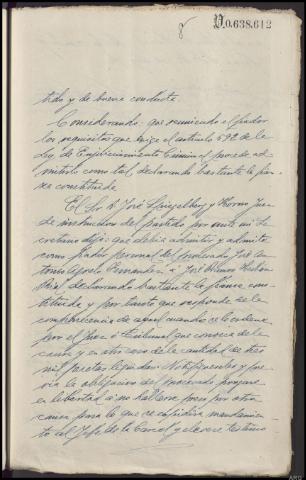 8
D0.638.612
tido, y de buena conducta
Considerando: que reuniendo el fiador
los requisitos que exige el articulo 592 de la
Ley de Enjuiciamiento Criminal procede ad-
mitirlo como tal, declarando bastante la fian-
za constituida
El Sr. D. José Spiegelberg y Horno Juez
de instruccion del partido por ante mi Se-
cretario dijo: que debia admitir y admite
como fiador personal del procesado José An-
tonio Fernandez á José
declarando bastante la fianza cons-
tituida y por tanto que responde de la
comparecencia de aquel cuando se le ordene
por el Juez ó Tribunal que conozca de la
causa y en otro caso de la cantidad de tres
mil pesetas fijadas. Notifiquese y pre-
via la obligacion del procesado pongase
en libertad si no hallare preso por otra
causa para lo que se expedira mandamien-
to al Jefe de la Carcel y elevese testimo